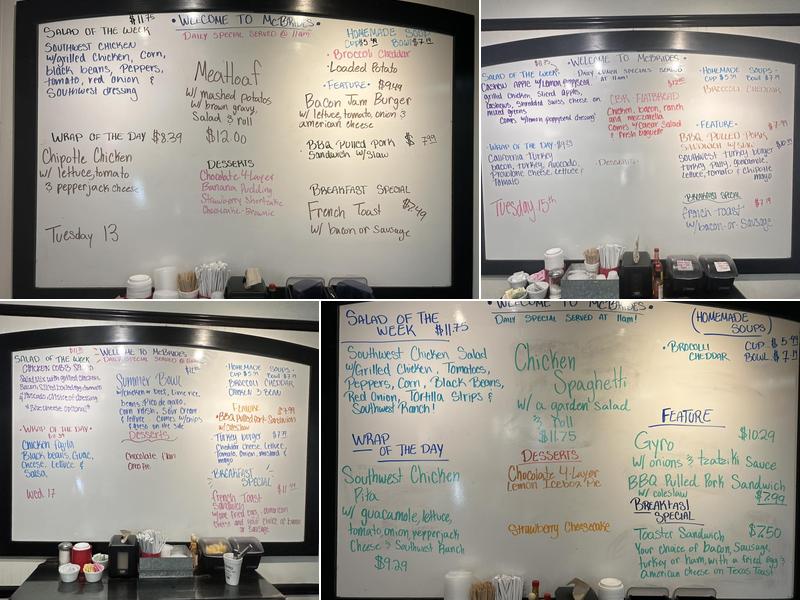 SALAD OF THE WEEK $11.75
SOUTHWEST CHICKEN
w/grilled Chicken, Corn,
black beans, Peppers,
tomato, red onion &
Southwest dressing
WRAP OF THE DAY $8.39
Chipotle Chicken
w/ lettuce, tomato
& pepperjack cheese
Tuesday 13
• WELCOME TO McBRIDES •
DAILY SPECIAL SERVED @ 11am
Meatloaf
w/ mashed potatos
w/ brown gravy,
Salad & roll
$12.00
DESSERTS
Chocolate 4-Layer
Banana Pudding
Strawberry Shortcake
Cheesecake-Brownie
HOMEMADE SOUP
CUP $5.99 BOWL $7.19
• Broccoli Cheddar
• Loaded Potato
• FEATURE • $9.49
Bacon Jam Burger
w/ lettuce, tomato, onion &
american cheese
• BBQ Pulled Pork $7.99
Sandwich w/ Slaw
BREAKFAST SPECIAL
French Toast $7.49
w/ bacon or Sausage
SALAD OF THE WEEK
Cashew apple w/ Lemon poppyseed
grilled Chicken, Sliced apples,
Cashews, Shredded Swiss cheese on
mixed greens
Comes w/ lemon poppyseed dressing
WRAP OF THE DAY $9.59
California Turkey
bacon, turkey, avocado,
Provolone cheese, lettuce &
Tomato
Tuesday 15th
• WELCOME TO McBRIDES •
DAILY LUNCH SPECIALS SERVED
@ 11am!
CBR FLATBREAD
Chicken, bacon, ranch
and mozzarella
Comes w/ Caesar Salad
& fresh baguette
Desserts
• HOMEMADE SOUPS •
CUP $5.99 BOWL $7.19
BROCCOLI CHEDDAR
• FEATURE •
BBQ PULLED PORK $7.99
SANDWICH w/ SLAW
Southwest turkey burger
turkey patty, guacamole,
lettuce, tomato & Chipotle
mayo
BREAKFAST SPECIAL
french toast $7.19
w/ bacon or Sausage
SALAD OF THE WEEK
CHICKEN COBB SALAD
Bacon, Sliced boiled egg, tomato
WRAP OF THE DAY
Chicken Fajita
Black beans, Guac,
Cheese, Lettuce &
Salsa
Wed 17
WELCOME TO McBRIDES
DAILY SPECIAL SERVED @ 11am
Summer Bowl
w/ chicken or beef, lime rice,
beans, Pico de gallo,
Corn relish, Sour Cream
& lettuce
Desserts
Chocolate Flan
Oreo Pie
• HOMEMADE SOUPS •
CUP $5.99 BOWL $7.19
BROCCOLI CHEDDAR
CHICKEN & BEAN
FEATURE $7.99
• BBQ Pulled Pork Sandwich
w/ coleslaw
Turkey burger
Cheddar cheese, lettuce,
Tomato, Onion, mustard &
mayo
BREAKFAST
SPECIAL
French Toast
Sandwich
w/ one fried egg, american
cheese and your choice of bacon
or sausage
SALAD OF THE
WEEK $11.75
Southwest Chicken Salad
w/ Grilled Chicken, Tomatoes,
Peppers, Corn, Black Beans,
Red Onion, Tortilla Strips &
Southwest Ranch!
WRAP
OF THE DAY
Southwest Chicken
Pita
w/ guacamole, lettuce,
tomato, onion, pepperjack
Cheese & Southwest Ranch
$9.29
• WELCOME TO McBRIDES •
DAILY SPECIAL SERVED AT 11am!
Chicken
Spaghetti
w/ a garden salad
& roll
$11.75
DESSERTS
Chocolate 4-Layer
Lemon Icebox Pie
Strawberry Cheesecake
(HOMEMADE
SOUPS)
• BROCOLLI CUP $5.99
CHEDDAR BOWL $7.19
FEATURE
Gyro $10.29
w/ onions & tzatziki Sauce
BBQ Pulled Pork Sandwich
w/ coleslaw $7.99
BREAKFAST
SPECIAL
Toaster Sandwich $7.50
Your choice of Bacon, Sausage,
turkey or ham, with a fried egg &
american cheese on Texas Toast